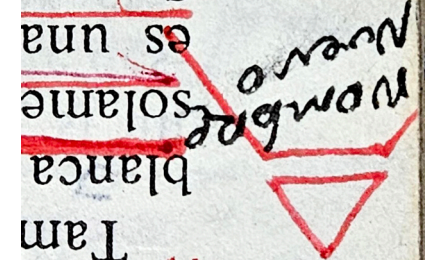 Tam
blanca
solame
es una
Nombre
Nuevo